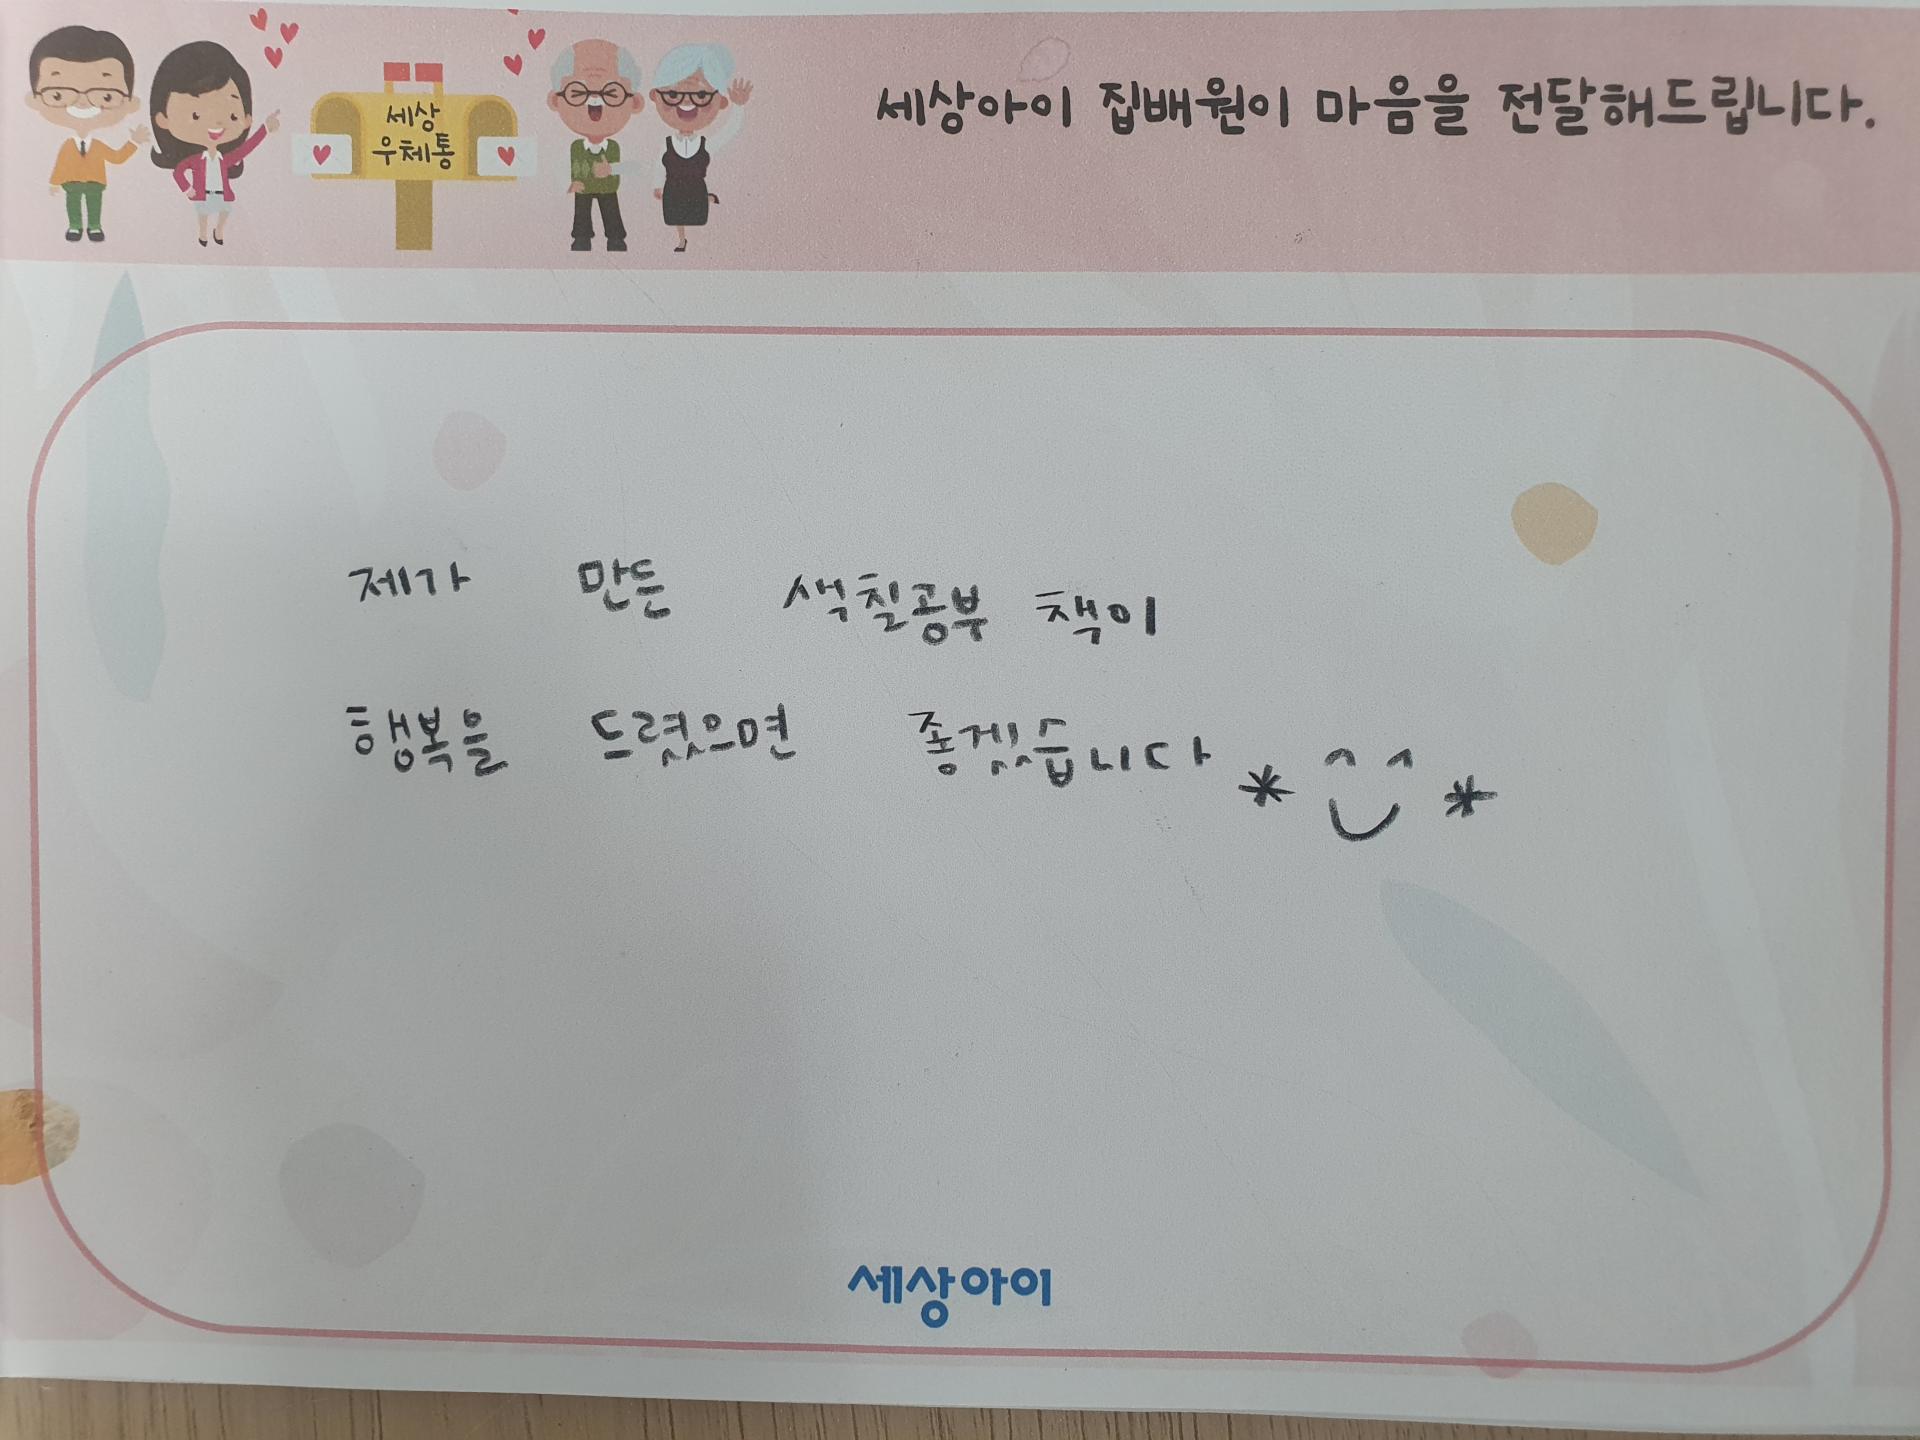 세상아이 집배원이 마음을 전달해드립니다.
세상
우체통
제가 만든 색칠공부 책이
행복을 드렸으면 좋겠습니다 * ^‿^ *
세상아이